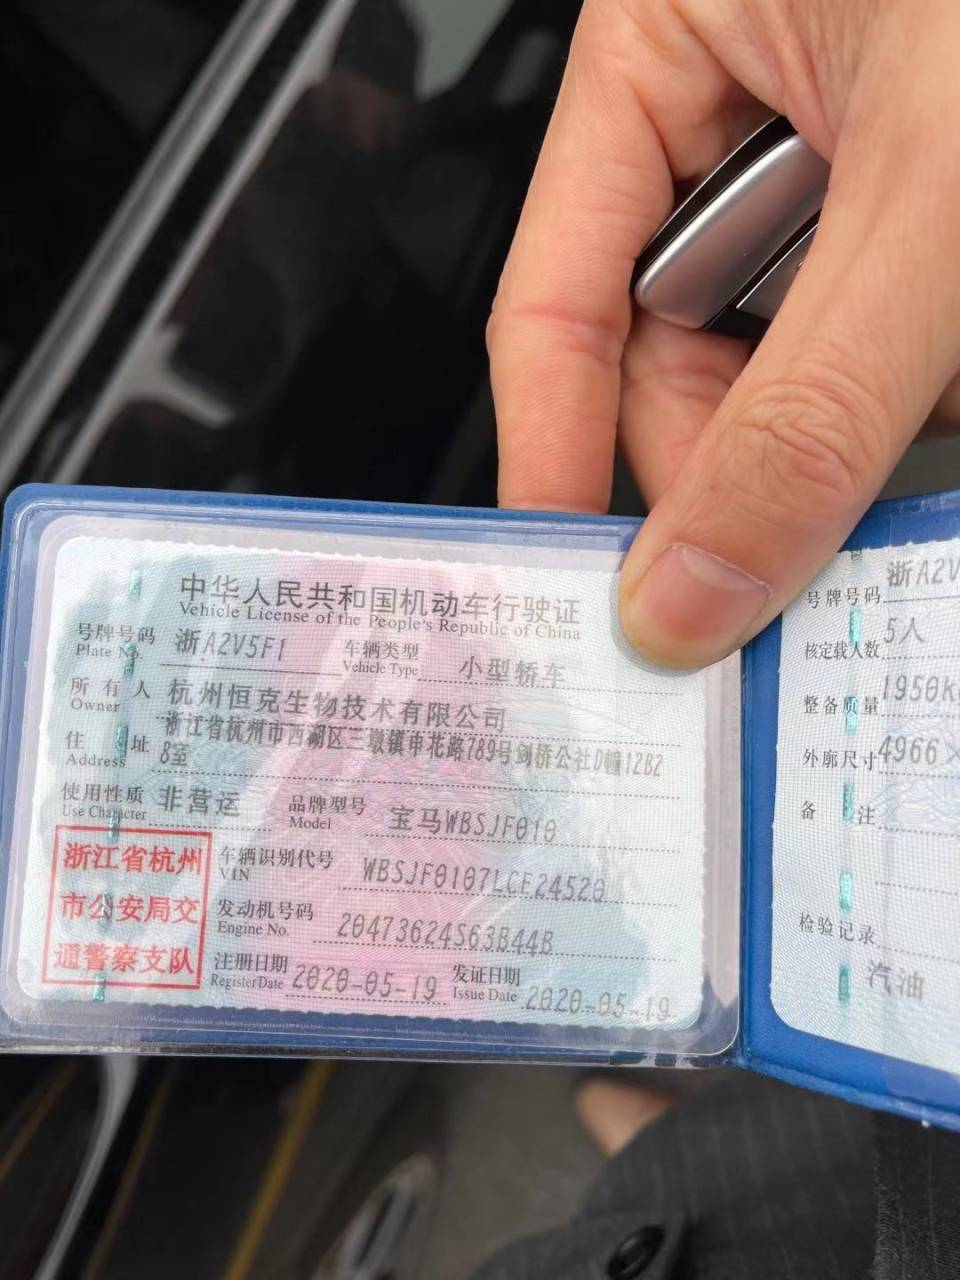 中华人民共和国机动车行驶证
Vehicle License of the People's Republic of China
号牌号码 浙A2V5F1 车辆类型 小型轿车
Plate No. Vehicle Type
所有人 杭州恒克生物技术有限公司
Owner
住址 浙江省杭州市西湖区三墩镇申花路789号剑桥公社D幢12B2
Address 8室
使用性质 非营运 品牌型号 宝马WBSJF010
Use Character Model
浙江省杭州
市公安局交
通警察支队
车辆识别代号 WBSJF0107LCE24520
VIN
发动机号码 20473624S63B44B
Engine No.
注册日期 2020-05-19 发证日期 2020-05-19
Register Date Issue Date
号牌号码 浙A2V
核定载人数 5人
整备质量 1950K
外廓尺寸 4966×
备注
检验记录
汽油